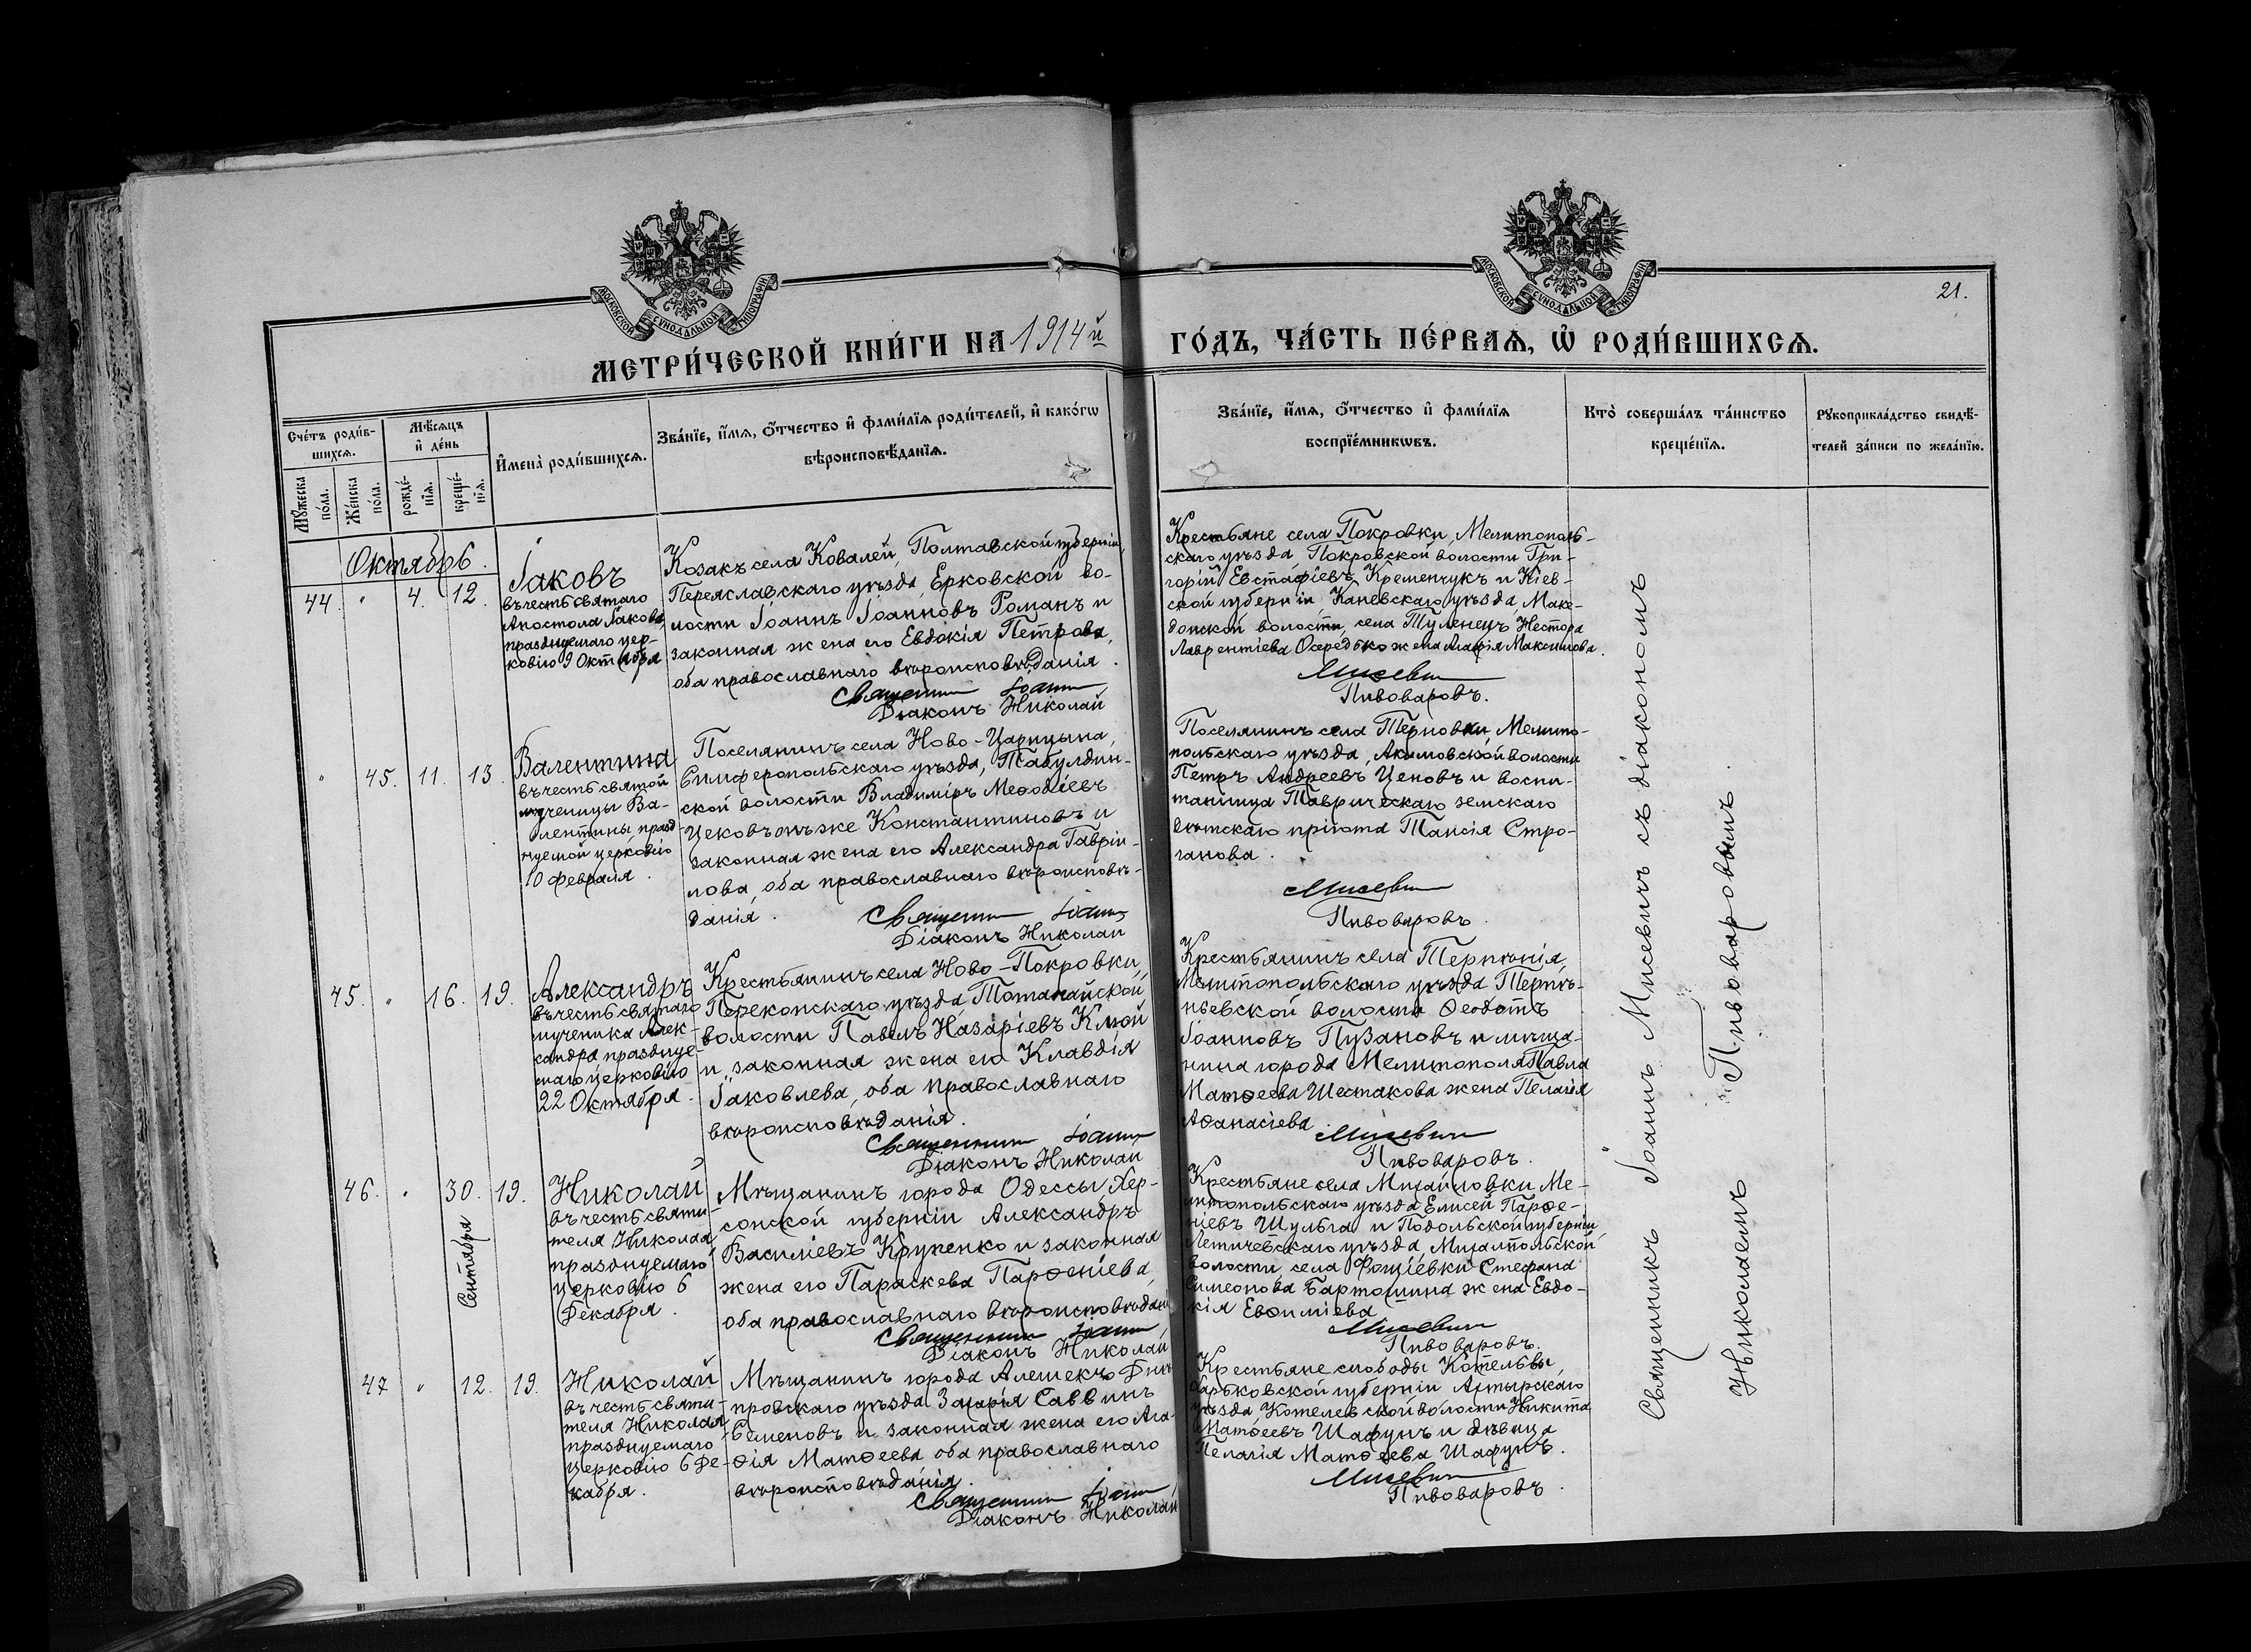 МОСКОВСКОЙ СУНОДАЛЬНОЙ ТИПОГРАФІИ
МОСКОВСКОЙ СУНОДАЛЬНОЙ ТИПОГРАФІИ
21.
МЕТРИ́ЧЕСКОЙ КНИ́ГИ НА 1914й ГО́ДЪ, ЧА́СТЬ ПЕ́РВАѦ, Ѡ҆ РОДИ́ВШИХСѦ.
Сче́тъ роди́в-
шихсѧ.
Мѹ́жеска по́ла.
Же́нска по́ла.
Мѣ́сѧцъ
и҆ де́нь
рожде́-
нїѧ.
креще́-
нїѧ.
И҆мена̀ роди́вшихсѧ.
Зва́нїе, и҆́мѧ, ѻ҆́тчество и҆ фами́лїѧ роди́телей, и҆ како́гѡ
вѣроисповѣ́данїѧ.
Зва́нїе, и҆́мѧ, ѻ҆́тчество и҆ фами́лїѧ
воспрїе́мникѡвъ.
Кто̀ соверша́лъ та́инство
креще́нїѧ.
Рѹкоприкла́дство свидѣ́-
телей за́писи по жела́нїю.
Октябрь.
44. " 4. 12.
Іаковъ
въ честь святаго
Апостола Іакова,
празднуемаго цер-
ковію 9 Октября
Козакъ села Ковалей, Полтавской губерніи,
Переяславскаго уѣзда, Ерковской во-
лости Іоаннъ Іоанновъ Романъ и
законная жена его Евдокія Петрова,
оба православнаго вѣроисповѣданія.
Священникъ Іоаннъ
Діаконъ Николай
Крестьяне села Покровки, Мелитополь-
скаго уѣзда, Покровской волости Гри-
горій Евстафіевъ Кременчукъ и Кіев-
ской губерніи, Каневскаго уѣзда, Маке-
донской волости, села Туленецъ Нестора
Лаврентіева Осередько жена Агафія Максимова.
Мисевичъ
Пивоваровъ.
" 45. 11. 13.
Валентина
въ честь святой
мученицы Ва-
лентины, празд-
нуемой церковію
10 Февраля.
Поселянинъ села Ново-Царицына,
Симферопольскаго уѣзда, Табулдин-
ской волости Владиміръ Меѳодіевъ
Цековъ онъ же Константиновъ и
законная жена его Александра Гаврiи-
лова, оба православнаго вѣроисповѣ-
данія.
Священникъ Іоаннъ
Діаконъ Николай
Поселянинъ села Терновки, Мелито-
польскаго уѣзда, Акимовской волости
Петръ Андреевъ Ценовъ и воспи-
танница Таврическаго земскаго
дѣтскаго пріюта Таисія Стро-
ганова.
Мисевичъ
Пивоваровъ.
45. " 16. 19.
Александръ
въ честь святаго
мученика Алек-
сандра празднуе-
маго церковію
22 Октября.
Крестьянинъ села Ново-Покровки,
Перекопскаго уѣзда, Тотанайской
волости Павелъ Назаріевъ Клюй
и законная жена его Клавдія
Іаковлева, оба православнаго
вѣроисповѣданія.
Священникъ Іоаннъ
Діаконъ Николай
Крестьянинъ села Терпѣнія,
Мелитопольскаго уѣзда Терпѣ-
ньевской волости Ѳеодотъ
Іоанновъ Пузановъ и мѣща-
нина города Мелитополя Павла
Матѳеева Шестакова жена Пелагія
Аѳанасіева
Мисевичъ
Пивоваровъ.
46. " 30. 19.
Сентября
Николай
въ честь святи-
теля Николая
празднуемаго
церковію 6
Декабря.
Мѣщанинъ города Одессы, Хер-
сонской губерніи Александръ
Василіевъ Крупенко и законная
жена его Параскева Парѳеніева,
оба православнаго вѣроисповѣданія
Священникъ Іоаннъ,
Діаконъ Николай
Крестьяне села Михайловки Ме-
литопольскаго уѣзда Елисей Парѳе-
ніевъ Шульга и Подольской губерніи
Летичевскаго уѣзда, Михалпольской
волости села Фащіевки Стефана
Симеонова Бартошина жена Евдо-
кія Евѳиміева
Мисевичъ
Пивоваровъ.
47 " 12. 19.
Николай
въ честь святи-
теля Николая
празднуемаго
церковію 6 Де-
кабря.
Мѣщанинъ города Алешекъ Днѣ-
провскаго уѣзда Захарія Саввинъ
Семеновъ и законная жена его Ага-
ѳія Матѳеева оба православнаго
вѣроисповѣданія.
Священникъ Іоаннъ,
Діаконъ Николай
Крестьяне слободы Котельвы,
Харьковской губерніи Ахтырскаго
уѣзда, Котелевской волости Никита
Матѳеевъ Шафунъ и дѣвица
Пелагія Матѳеева Шафунъ.
Мисевичъ
Пивоваровъ.
Священникъ Іоаннъ Мисевичъ съ діакономъ
Николаемъ Пивоваровымъ.